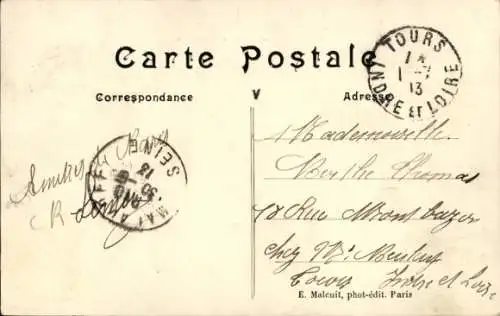 Carte Postale
Correspondance
Adresse
TOURS
1
13
INDRE ET LOIRE
Amitiés de
MALAKOFF
SEINE
30
13
Mademoiselle
Berthe Thomas
18 Rue Montbazon
chez Mr
Tours Indre et Loire
E. Malcuit, phot-édit. Paris